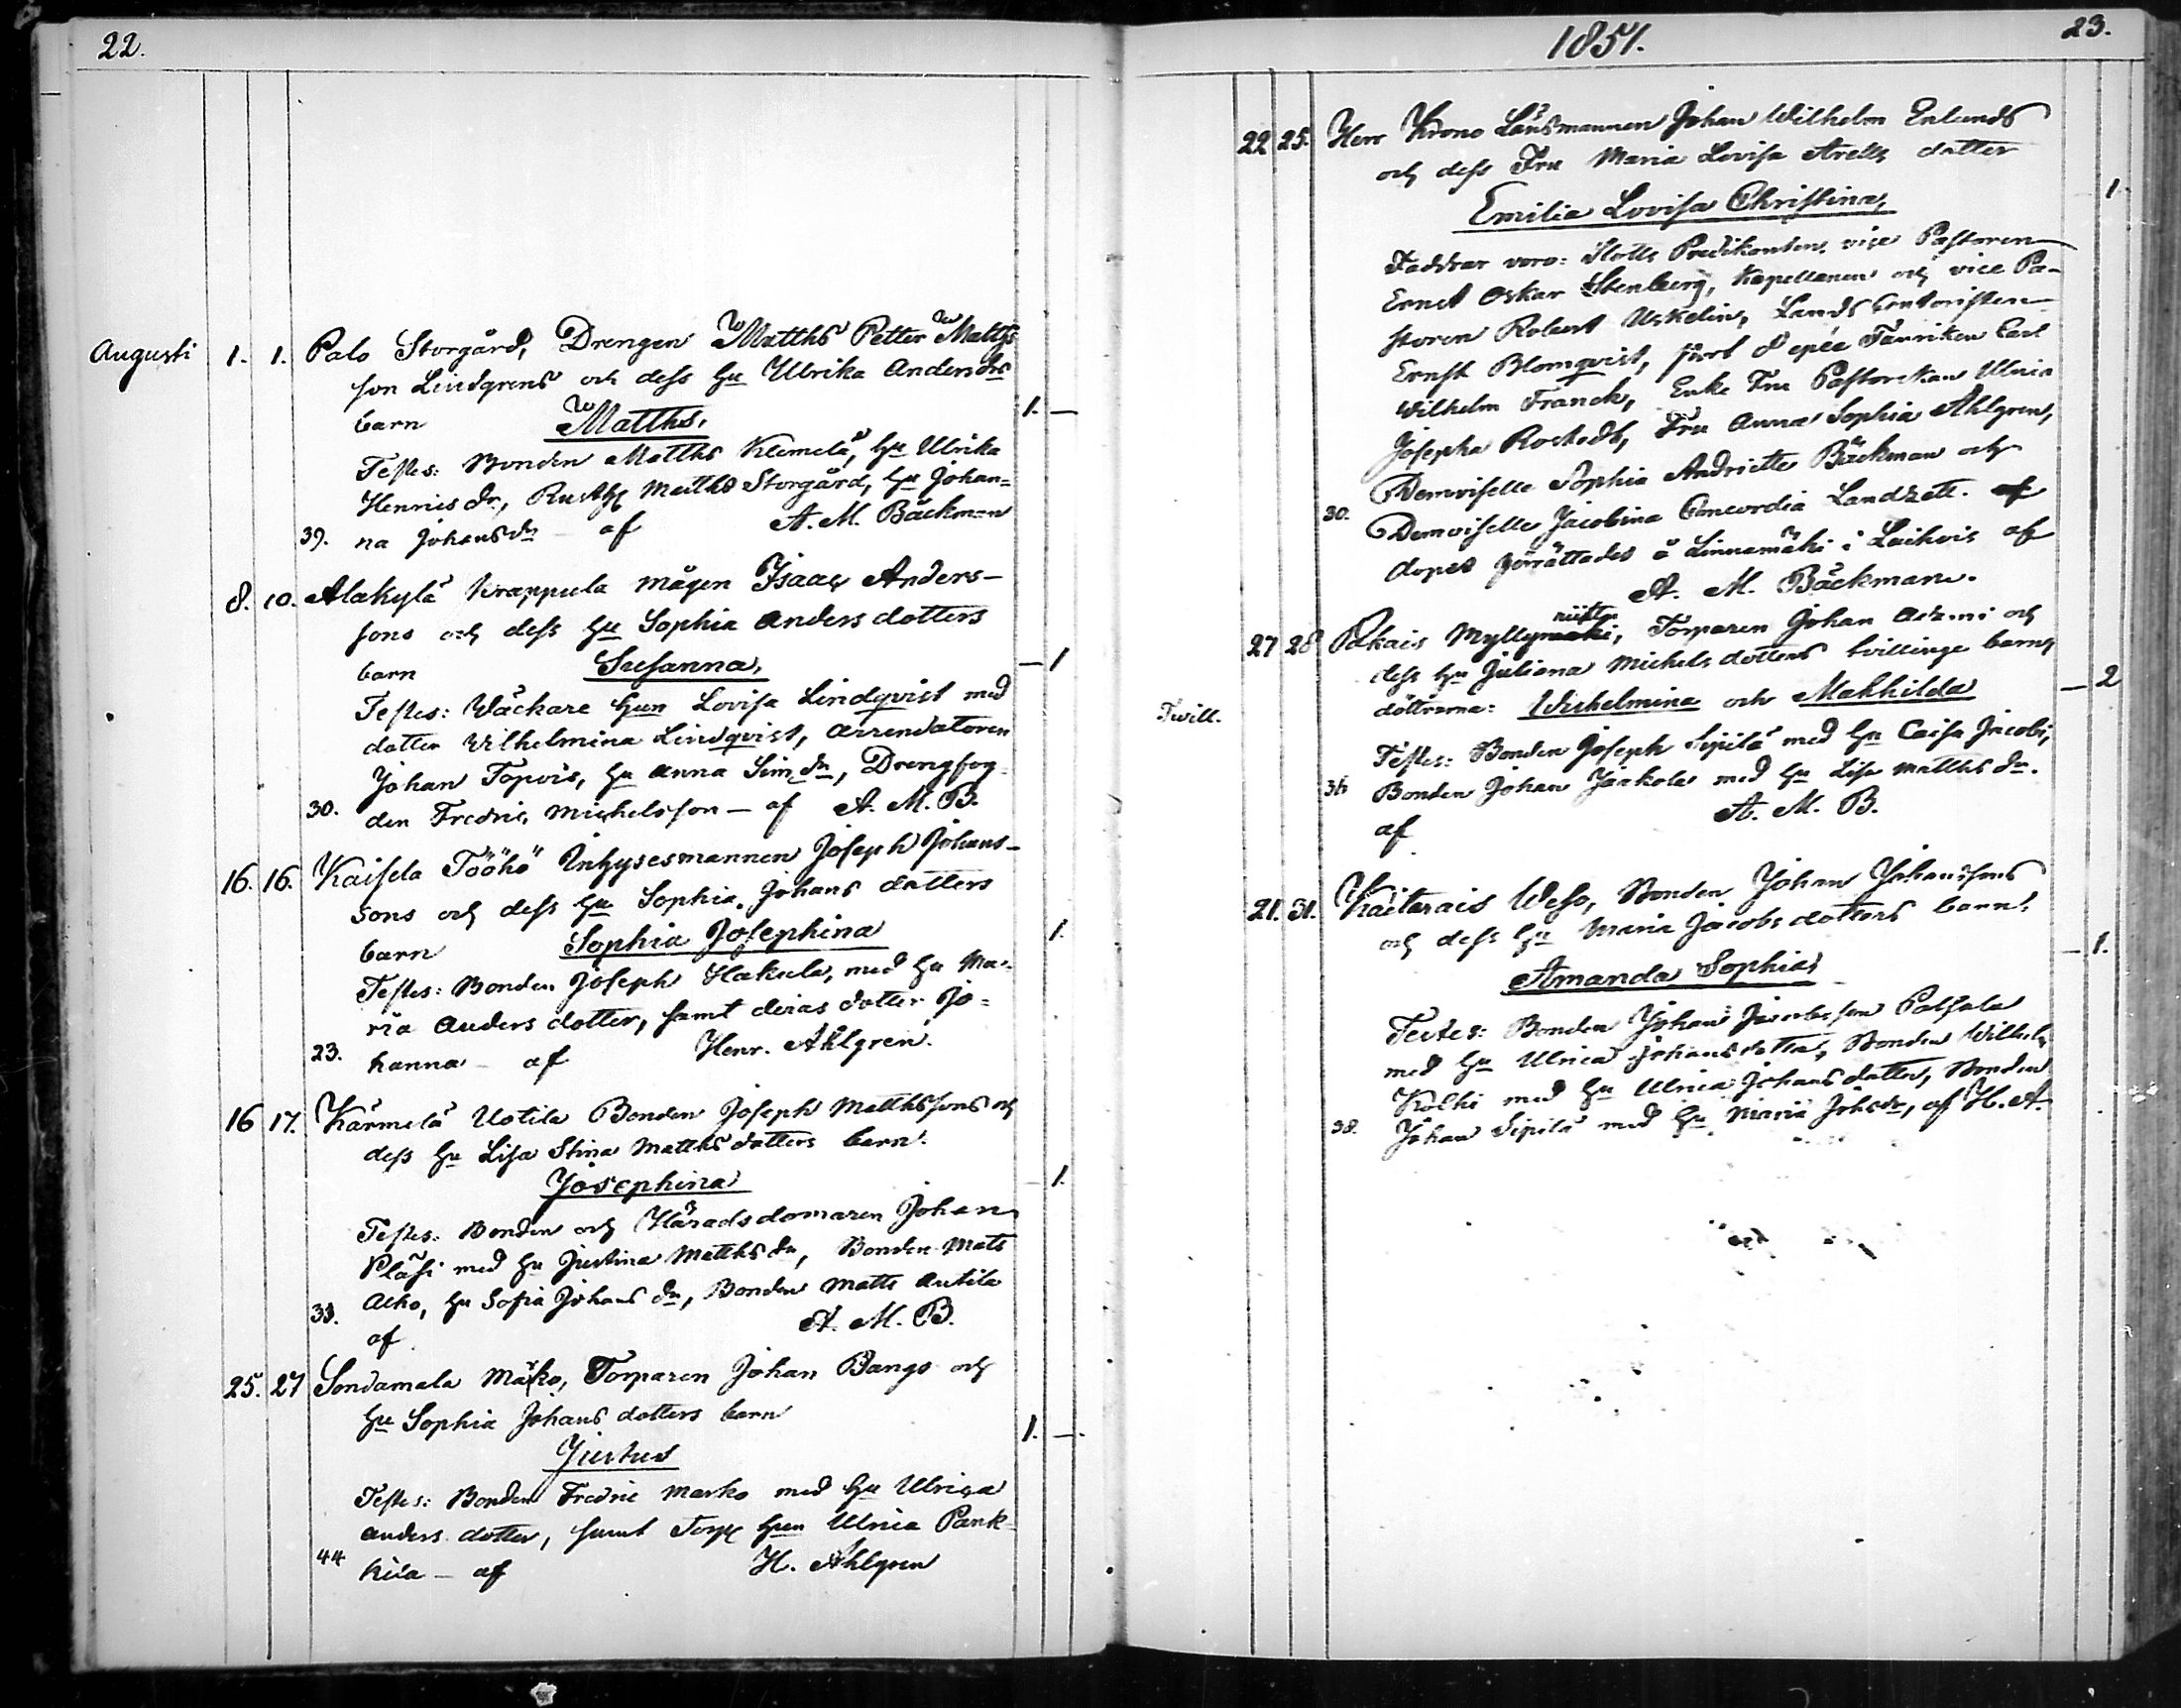 22.
Augusti 1. 1. Palo Storgård, Drengen Matths Petter Matths
son Lindgrens och dess Hu Ulrika Andersdrs
barn Matths. 1. —
Testes: Bonden Matths Klemelä, Hu Ulrika
Henricsdr, Rusth Matths Storgård, Hu Johan=
39. na Johansdr af A. M. Bäckman
8. 10. Alakylä Krappula mågen Isaac Anders-
sons och dess Hu Sophia Anders dotters
barn Susanna, — 1
Testes: Wäckare Hun Lovisa Lindqvist med
dotter Wilhelmina Lindqvist, Arrendatoren
Johan Topois, Hu Anna Simdr, Drengfog-
30. den Fredric Michelsson — af A. M. B.
16. 16. Kaisela Tööhö Inhysesmannen Joseph Johans-
sons och dess Hu Sophia Johans dotters
barn Sophia Josephina 1.
Testes: Bonden Joseph Hakula, med Hu Ma-
ria Anders dotter, samt deras dotter Jo=
23. hanna — af Henr. Ahlgren.
16 17. Kärmelä Uotila Bonden Joseph Matthssons och
dess Hu Lisa Stina Matths dotters barn:
Josephina — 1.
Testes: Bonden och Häradsdomaren Johan
Pläsi med Hu Justina Matthsdr, Bonden Mats
33. Alho, Hu Sofia Johansdr, Bonden Matts Antila
af A. M. B.
25. 27 Sondamala Märko, Torparen Johan Bangs och
Hu Sophia Johans dotters barn
Justus 1. —
Testes: Bonden Fredric Marko med Hu Ulrica
Anders dotter, samt Torp Hun Ulrica Pank-
44 kila — af H. Ahlgren
1851. 23.
22 25. Herr Krono Länsmannen Johan Wilhelm Enlunds
och dess Fru Maria Lovisa Arells dotter
Emilia Lovisa Christina, 1.
Faddrar voro: Slotts Predikanten, vice Pastoren
Ernst Oskar Stenberg, Kapellanen och vice Pa-
storen Robert Uskelin, Lands Contoristen
Ernst Blomqvist, Port d'epée Fänriken Carl
Wilhelm Franck, Enke Fru Pastorskan Ulrica
Josepha Rostedt, Fru Anna Sophia Ahlgren,
Demoiselle Sophia Andriette Bäckman och
30. Demoiselle Jacobina Concordia Landzett. af
dopet förrättades å Linnamäki i Laihois af
A. M. Bäckman.
riitta
27 28 Pakais Myllymaki, Torparen Johan Adami och
dess Hu Juliana Michels dotters tvillinge barn,
Twill. döttrarna: Wilhelmina och Mathilda — 2
Testes: Bonden Joseph Sipilä med Hu Caisa Jacobi,
36 Bonden Johan Jaakola med Hu Lisa Matthsdr.
af A. M. B.
21. 31. Kaitarais Weso, Bonden Johan Johanssons
och dess Hu Maria Jacobs dotters barn:
Amanda Sophia — 1.
Testes: Bonden Johan Jacobsson Palsala
med Hu Ulrica Johansdotter, Bonden Wilhelm
Kolhi med Hu Ulrica Johans dotter, Bonden
38. Johan Sipilä med Hu Maria Johsdr, af H. A.